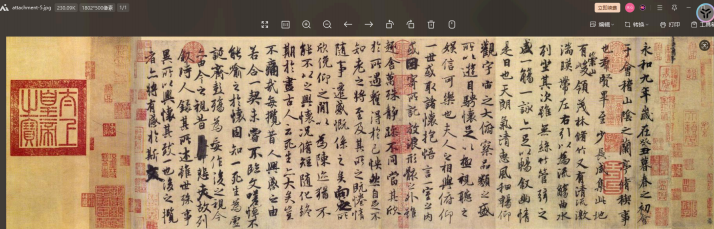 attachment-5.jpg 230.00K 1802*500像素 1/1
编辑 转换 打印
永和九年歲在癸丑暮春之初會
于會稽山陰之蘭亭脩稧事
也群賢畢至少長咸集此地
有崇山峻領茂林脩竹又有清流激
湍暎帶左右引以為流觴曲水
列坐其次雖無絲竹管弦之
盛一觴一詠亦足以暢敘幽情
是日也天朗氣清惠風和暢仰
觀宇宙之大俯察品類之盛
所以遊目騁懷足以極視聽之
娛信可樂也夫人之相與俯仰
一世或取諸懷抱悟言一室之內
或因寄所託放浪形骸之外雖
趣舍萬殊靜躁不同當其欣
於所遇蹔得於己怏然自足不
知老之將至及其所之既惓情
隨事遷感慨係之矣向之所
欣俛仰之閒以為陳迹猶不
能不以之興懷況脩短隨化終
期於盡古人云死生亦大矣豈
不痛哉每攬昔人興感之由
若合一契未嘗不臨文嗟悼不
能喻之於懷固知一死生為虛
誕齊彭殤為妄作後之視今
亦由今之視昔悲夫故列
敘時人錄其所述雖世殊事
異所以興懷其致一也後之攬
者亦將有感於斯文